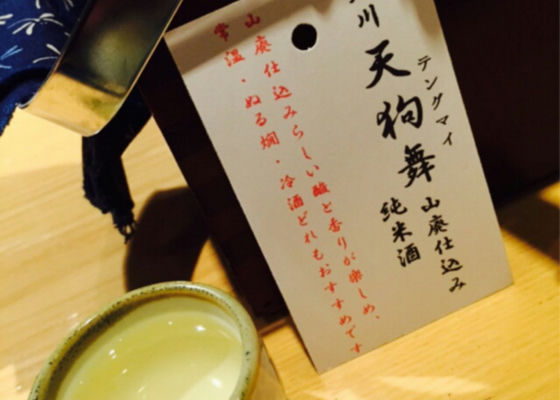 川 天狗舞
テングマイ
山廃仕込み
純米酒
山廃仕込みらしい酸と香りが楽しめ、
常温・ぬる燗・冷酒どれもおすすめです